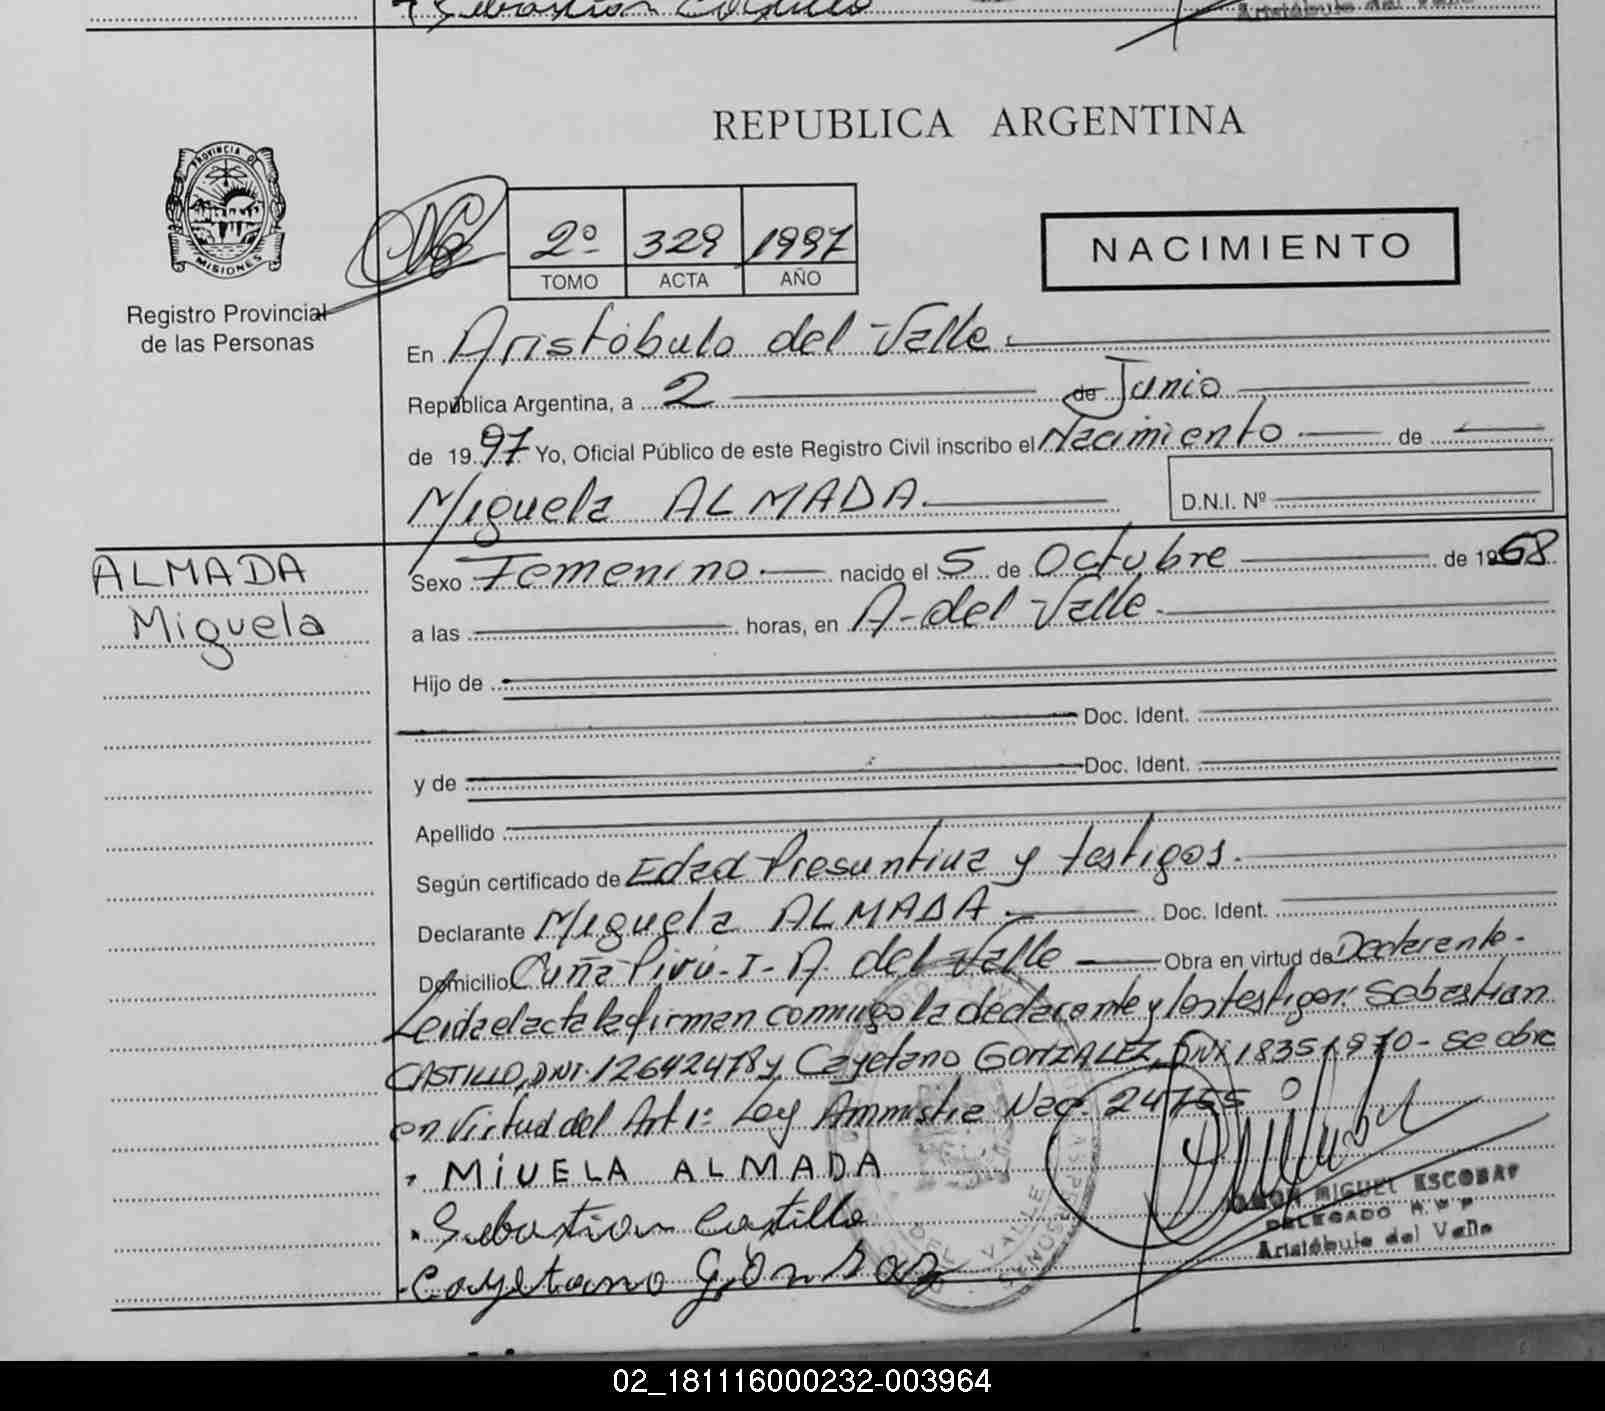 Sebastian Castillo
Aristóbulo del Valle
REPUBLICA ARGENTINA
PROVINCIA DE
MISIONES
Registro Provincial
de las Personas
2º 329 1997
TOMO ACTA AÑO
NACIMIENTO
En Aristóbulo del Valle
República Argentina, a 2 de Junio
de 1997 Yo, Oficial Público de este Registro Civil inscribo el Nacimiento de
Miguela ALMADA
D.N.I. Nº
ALMADA
Miguela
Sexo Femenino nacido el 5 de Octubre de 1968
a las horas, en A. del Valle
Hijo de
Doc. Ident.
y de Doc. Ident.
Apellido
Según certificado de Edad Presuntiva y testigos.
Declarante Miguela ALMADA Doc. Ident.
Domicilio Cuña Pirú-I-A. del Valle Obra en virtud de Declarante-
Leida el acta la firman conmigo la declarante y los testigos: Sebastian
CASTILLO, DNI. 12642478 y Cayetano GONZALEZ, DNI 18351970- se obre
en virtud del Art 1º Ley Amnistia Nac. 24755
MiUELA ALMADA
Sebastian Castillo
Cayetano
MIGUEL ESCOBAR
DELEGADO R.P.P
Aristóbulo del Valle
02_181116000232-003964